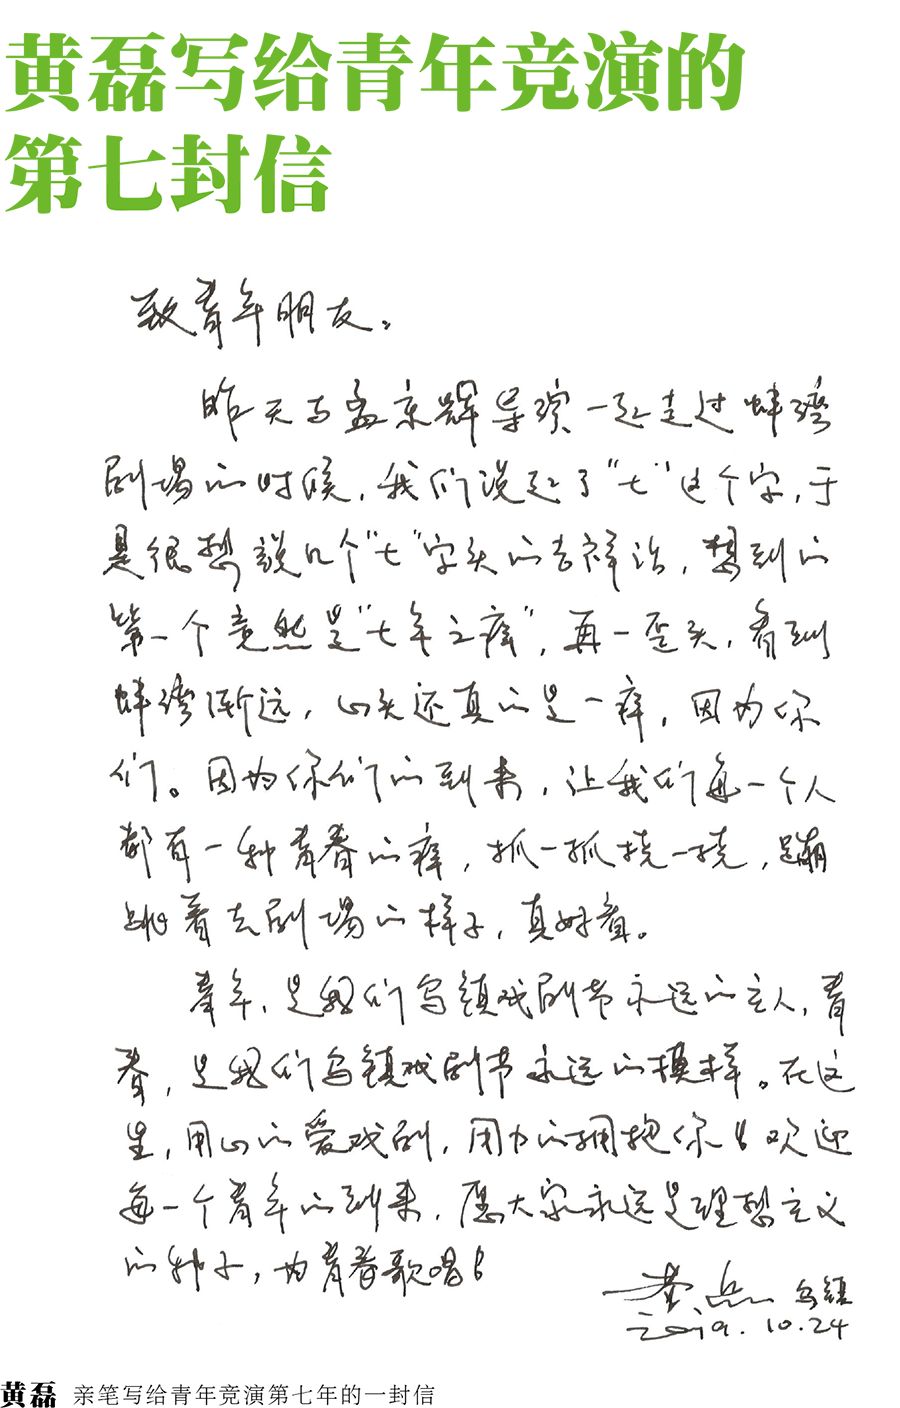 黄磊写给青年竞演的
第七封信
致青年朋友。
昨天与孟京辉导演一起走过蚌湾
剧场的时候，我们说起了“七”这个字，于
是很想说几个“七”字头的吉祥话，想到的
第一个竟然是“七年之痒”，再一歪头，看到
蚌湾渐远，心头还真的是一痒，因为你
们。因为你们的到来，让我们每一个人
都有一种青春的痒，抓一抓挠一挠，蹦
跳着去剧场的样子，真好看。
青年，是我们乌镇戏剧节永远的主人，青
春，是我们乌镇戏剧节永远的模样。在这
里，用心的爱戏剧，用力的拥抱你！欢迎
每一个青年的到来，愿大家永远是理想主义
的种子，为青春歌唱！
黄磊 乌镇
2019.10.24
黄磊 亲笔写给青年竞演第七年的一封信